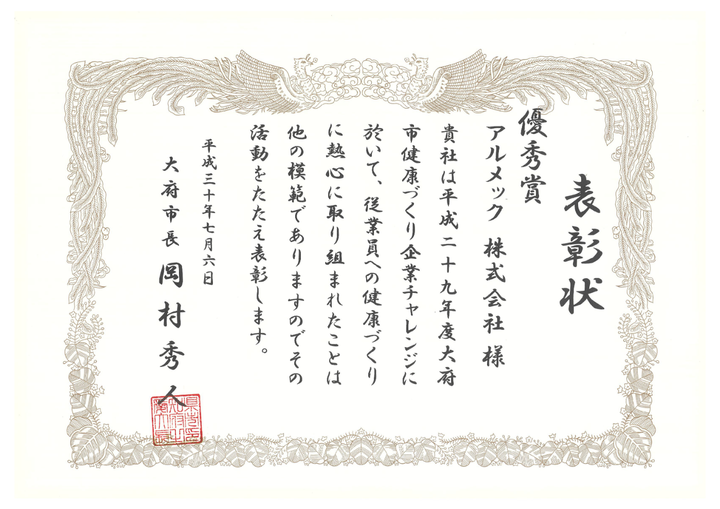 表彰状
優秀賞
アルメック 株式会社 様
貴社は平成二十九年度大府
市健康づくり企業チャレンジに
於いて、従業員への健康づくり
に熱心に取り組まれたことは
他の模範でありますのでその
活動をたたえ表彰します。
平成三十年七月六日
大府市長 岡村秀人